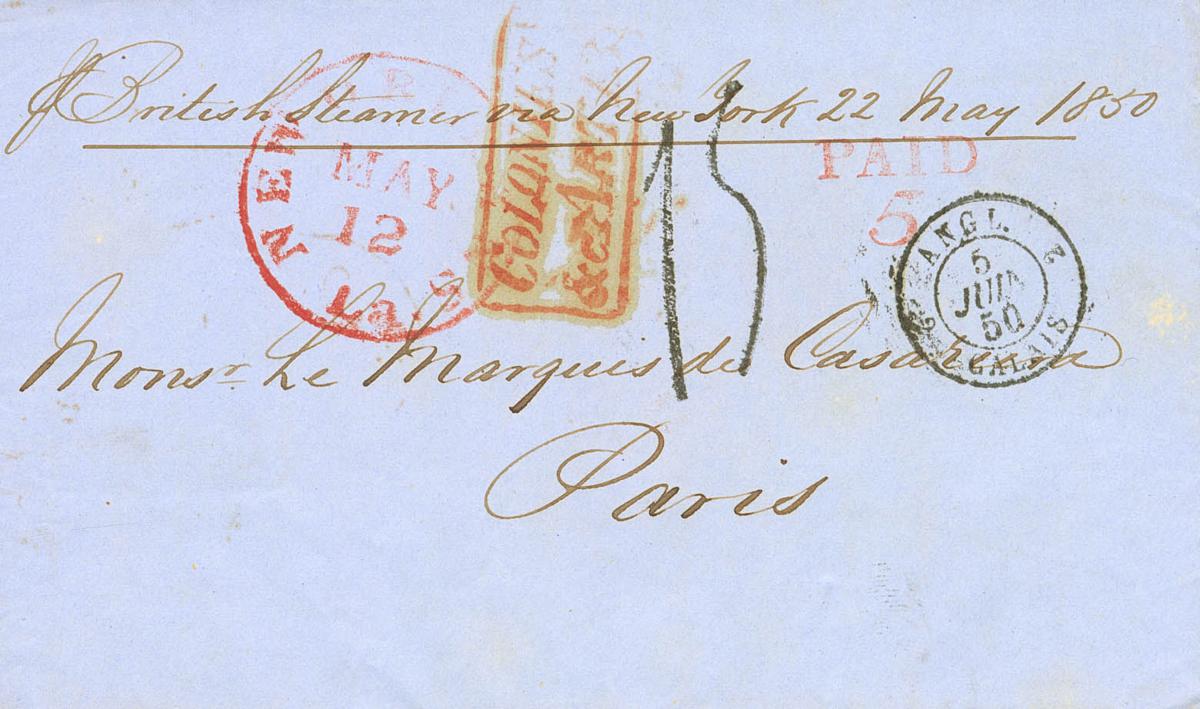 pr British Steamer via New York 22 May 1850
NEW
MAY
12
La.
COLONIES
&cART.
15
PAID
5
ANGL. 2
5
JUIN
50
CALAIS
Monsr. Le Marques de
Paris